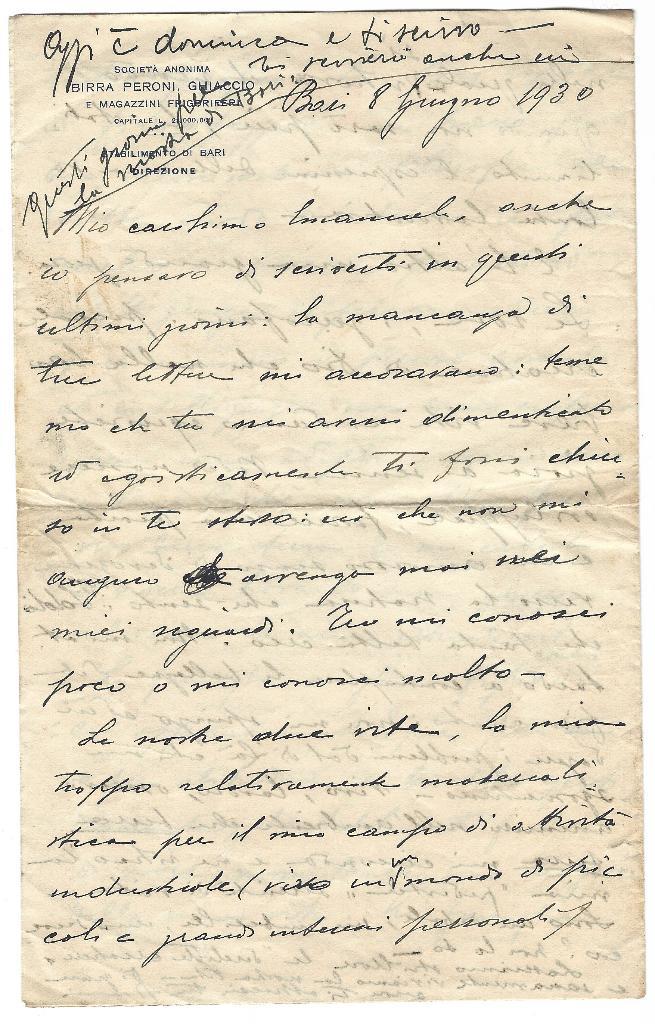 Oggi è domenica e ti scrivo —
SOCIETÀ ANONIMA
BIRRA PERONI, GHIACCIO
E MAGAZZINI FRIGORIFERI
CAPITALE L.
STABILIMENTO DI BARI
DIREZIONE
Ti scriverò anche in
questi giorni per
la mostra di Bari.
Bari 8 Giugno 1930
Mio carissimo Emanuele, anche
io pensavo di scriverti in questi
ultimi giorni: la mancanza di
tue lettere mi accoravano: teme
vo che tu mi avessi dimenticato
ed egoisticamente ti fossi chiu-
so in te stesso: ciò che non mi
auguro avvenga mai nei
miei riguardi. Tu mi conosci
poco o mi conosci molto —
Le nostre due vite, la mia
troppo relativamente materiali-
stica per il mio campo di attività
industriale (vivo in un mondo di pic
coli e grandi interessi personali)